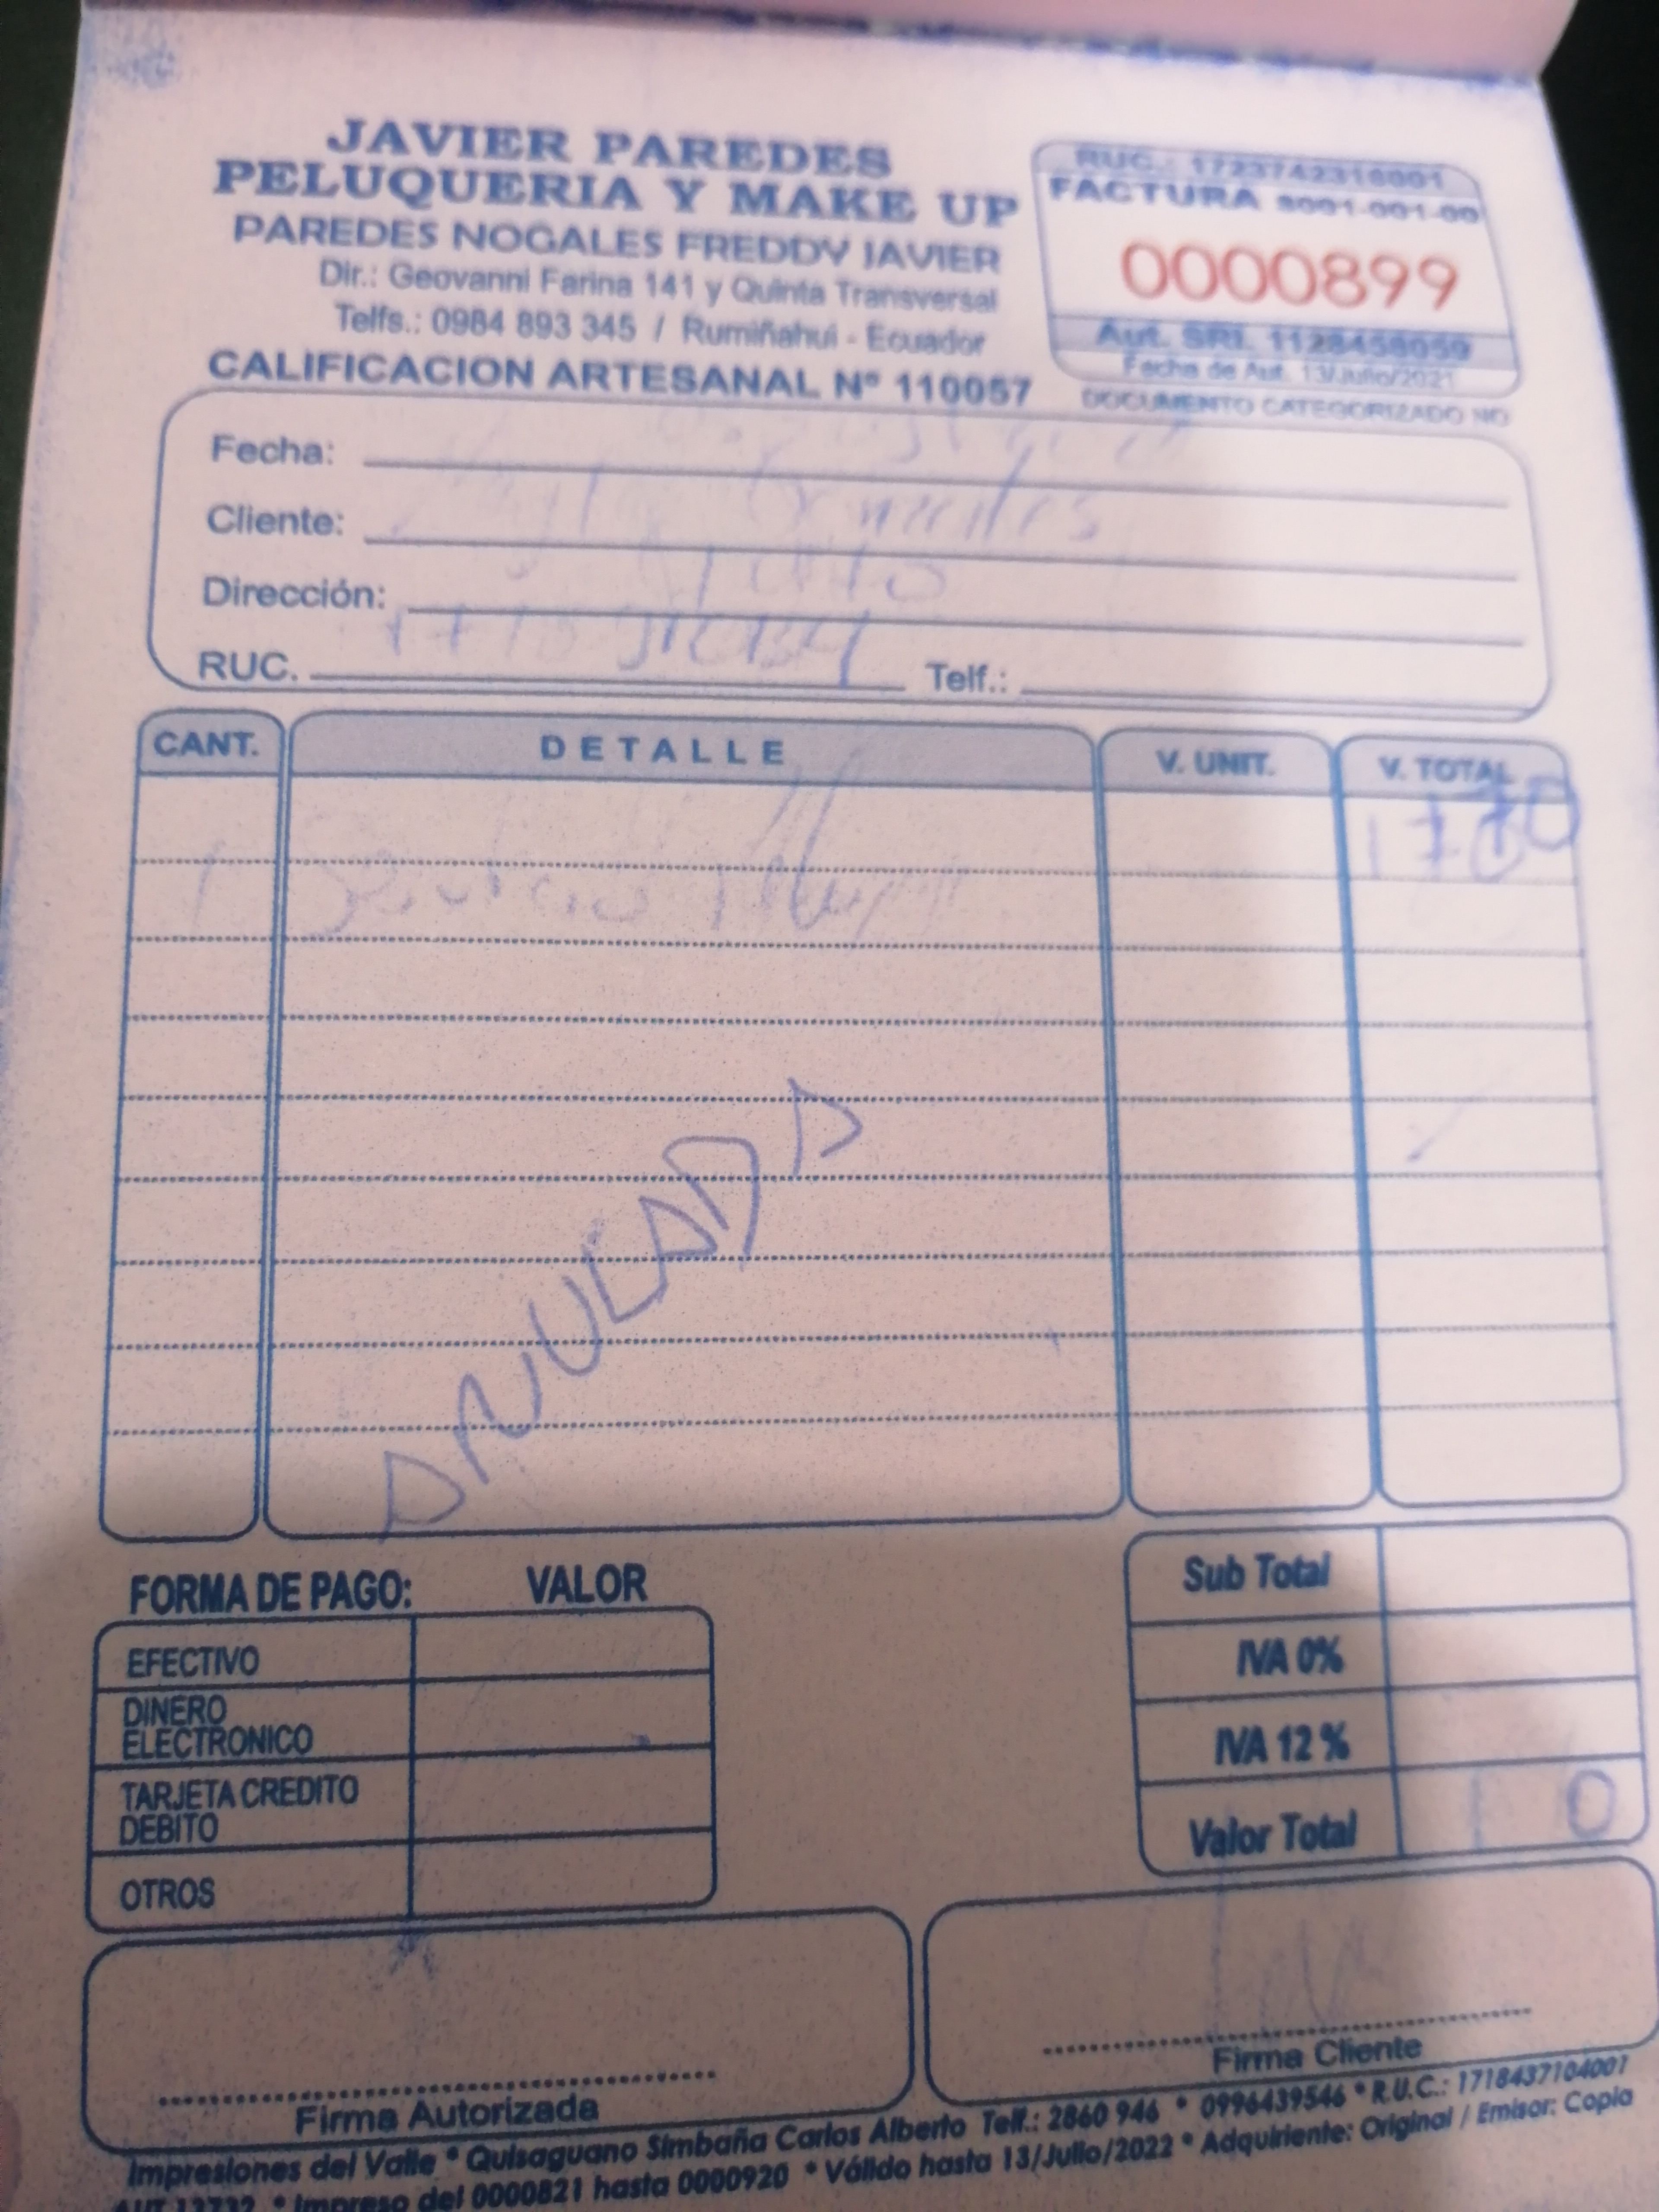 JAVIER PAREDES
PELUQUERIA Y MAKE UP
PAREDES NOGALES FREDDY JAVIER
Dir.: Geovanni Farina 141 y Quinta Transversal
Telfs.: 0984 893 345 / Rumiñahui - Ecuador
CALIFICACION ARTESANAL Nº 110057
RUC.: 1723742316001
FACTURA S001-001-00
0000899
Aut. SRI. 1128458059
Fecha de Aut. 13/Julio/2021
DOCUMENTO CATEGORIZADO NO
Fecha:
Cliente:
Dirección:
RUC. Telf.:
CANT. DETALLE V. UNIT. V. TOTAL
ANULADA
FORMA DE PAGO: VALOR
EFECTIVO
DINERO
ELECTRONICO
TARJETA CREDITO
DEBITO
OTROS
Sub Total
IVA 0%
IVA 12 %
Valor Total
Firma Autorizada
Firma Cliente
Impresiones del Valle * Quisaguano Simbaña Carlos Alberto Telf.: 2860 946 * 0996439546 * R.U.C.: 1718437104001
AUT 13732 * Impreso del 0000821 hasta 0000920 * Válido hasta 13/Julio/2022 * Adquiriente: Original / Emisor: Copia